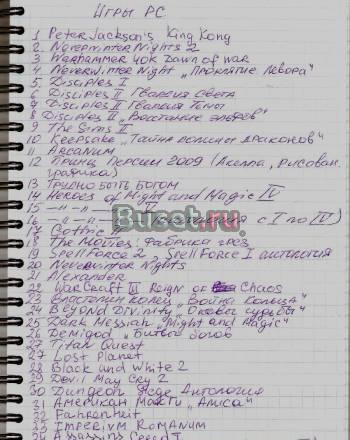 Игры PC
1 Peter Jackson's King Kong
2. Neverwinter Nights 2
3 Warhammer 40k Dawn of war
4 Neverwinter Night „Проклятие Невора"
5 Disciples I
6 Disciples II Гвардия Света
7 Disciples II Гвардия Тьмы
8 Disciples II „Восстание эльфов"
9 The Sims II
10 Keepsake „Тайна долины драконов"
11 Arcanum
12 Принц Персии 2009 (Акелла, рисован. графика)
13 Трудно быть богом
14 Heroes of Might and Magic IV
15 —"— "—
16 —"—"— с I по IV)
17 Gothic II
18 The Movies: Фабрика грёз
19 SpellForce 2, SpellForce I антология
20 Neverwinter Nights
21 Alexander
22 Warcraft III Reign of Chaos
23 Властелин колец „Война Кольца"
24 Beyond Divinity „Оковы судьбы"
25 Dark Messiah „Might and Magic"
26 Demigod „Битвы богов
27 Titan Quest
27 Lost Planet
28 Black and White 2
29 Devil May Cry 2
30 Dungeon Siege Антология
31 Американ Макги „Алиса"
Fahrenheit
Imperium Romanum
Assassins Creed I
Buset.ru